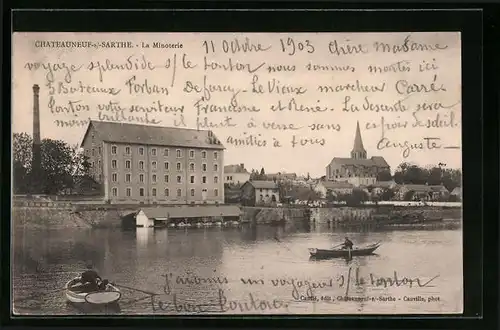 CHATEAUNEUF-s/-SARTHE. - La Minoterie
11 Octobre 1903 Chère Madame
voyage splendide s/ le tonton nous sommes montés ici
5 Bateaux Forban Le Vieux marcheur Carré
tonton votre serviteur Francine et René. La descente sera
moins brillante il pleut à verse sans espoir de soleil.
amitiés à tous Auguste
un voyageur s/ le tonton
le bon tonton
édit., Châteauneuf-s/-Sarthe - Cauville, phot.